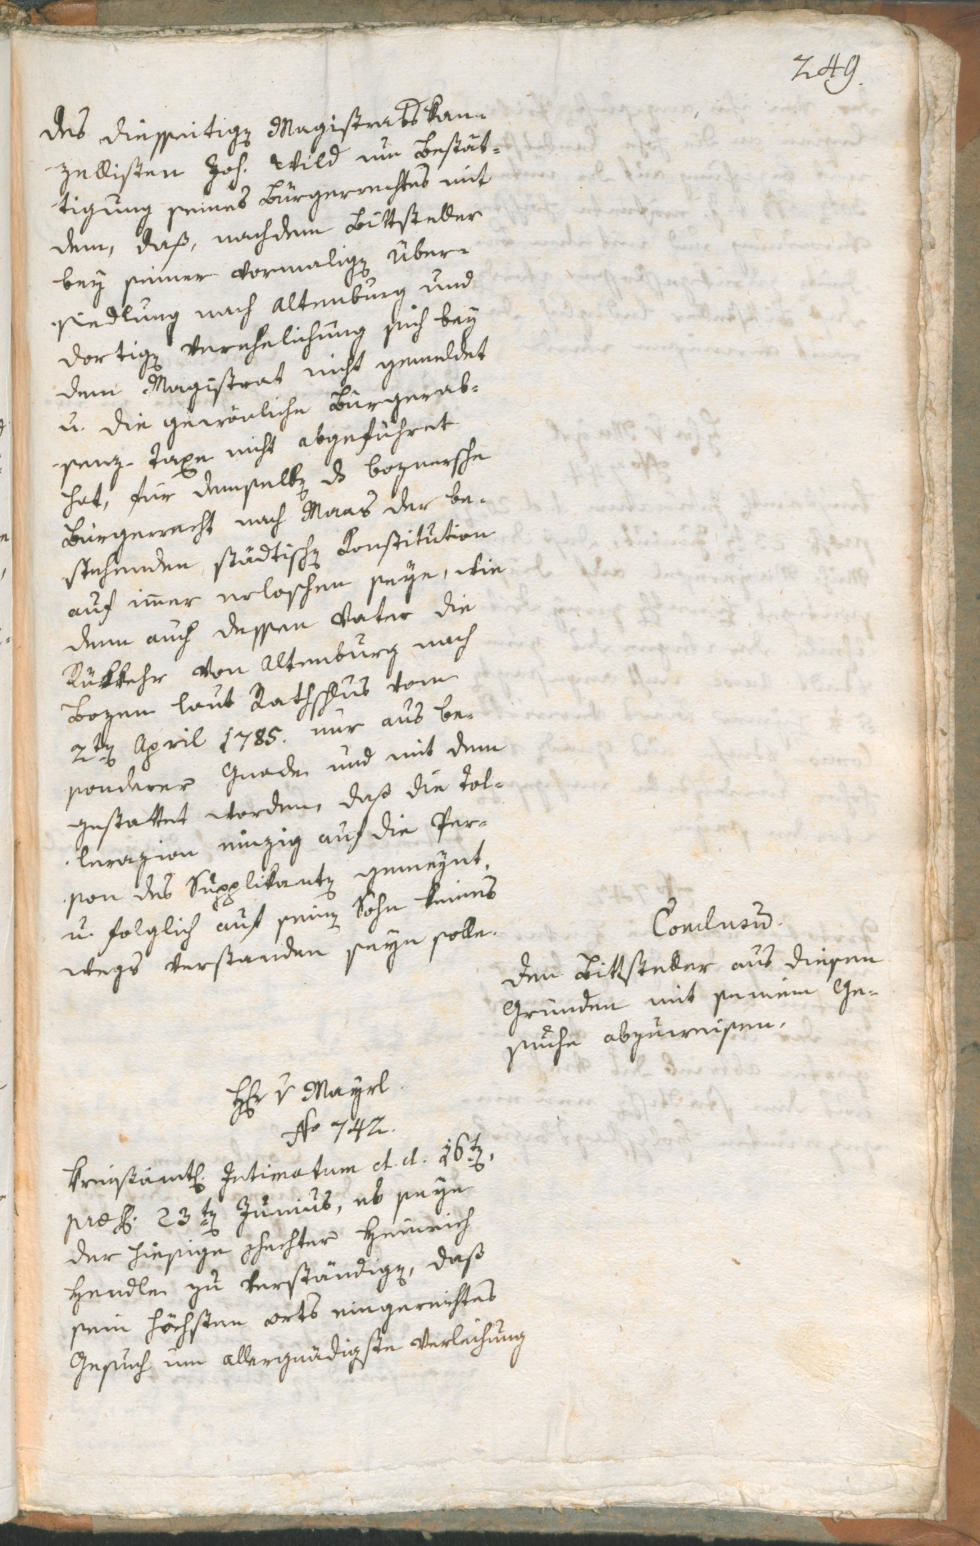 249.
des diesseitigen Magistratskan-
zellisten Joh. Wild um Bestät-
tigung seines Bürgerrechtes mit
dem, daß, nachdem Bittsteller
bey seiner vormaligen Über-
siedlung nach Altenburg und
dortigen Verehelichung sich bey
dem Magistrat nicht gemeldet
u. die gewönliche Bürgerab-
senz-Taxe nicht abgeführet
hat, für demselben das boznersche
Bürgerrecht nach Maas der be-
stehenden städtischen Constitution
auf immer erloschen seye, wie
denn auch dessen Vater die
Rükkehr von Altenburg nach
Bozen laut Rathschlus vom
2ten April 1785. nur aus be-
sonderer Gnade und mit dem
gestattet worden, daß die Tol-
lerazion einzig auf die Per-
son des Supplikanten gemeynt,
u. folglich auf seine Söhn keines
wegs verstanden seyn solle.
Conclusum.
Den Bittsteller aus diesen
Gründen mit seinem Ge-
suche abzuweisen.
Hr v Mayrl
No 742.
Kreisämtl. Intimatum d. d. 16ten,
præs. 23ten Junius, es seye
der hiesige Fechter Heinrich
Hendle zu verständigen, daß
sein höchsten Orts eingereichtes
Gesuch um allergnädigste Verleihung